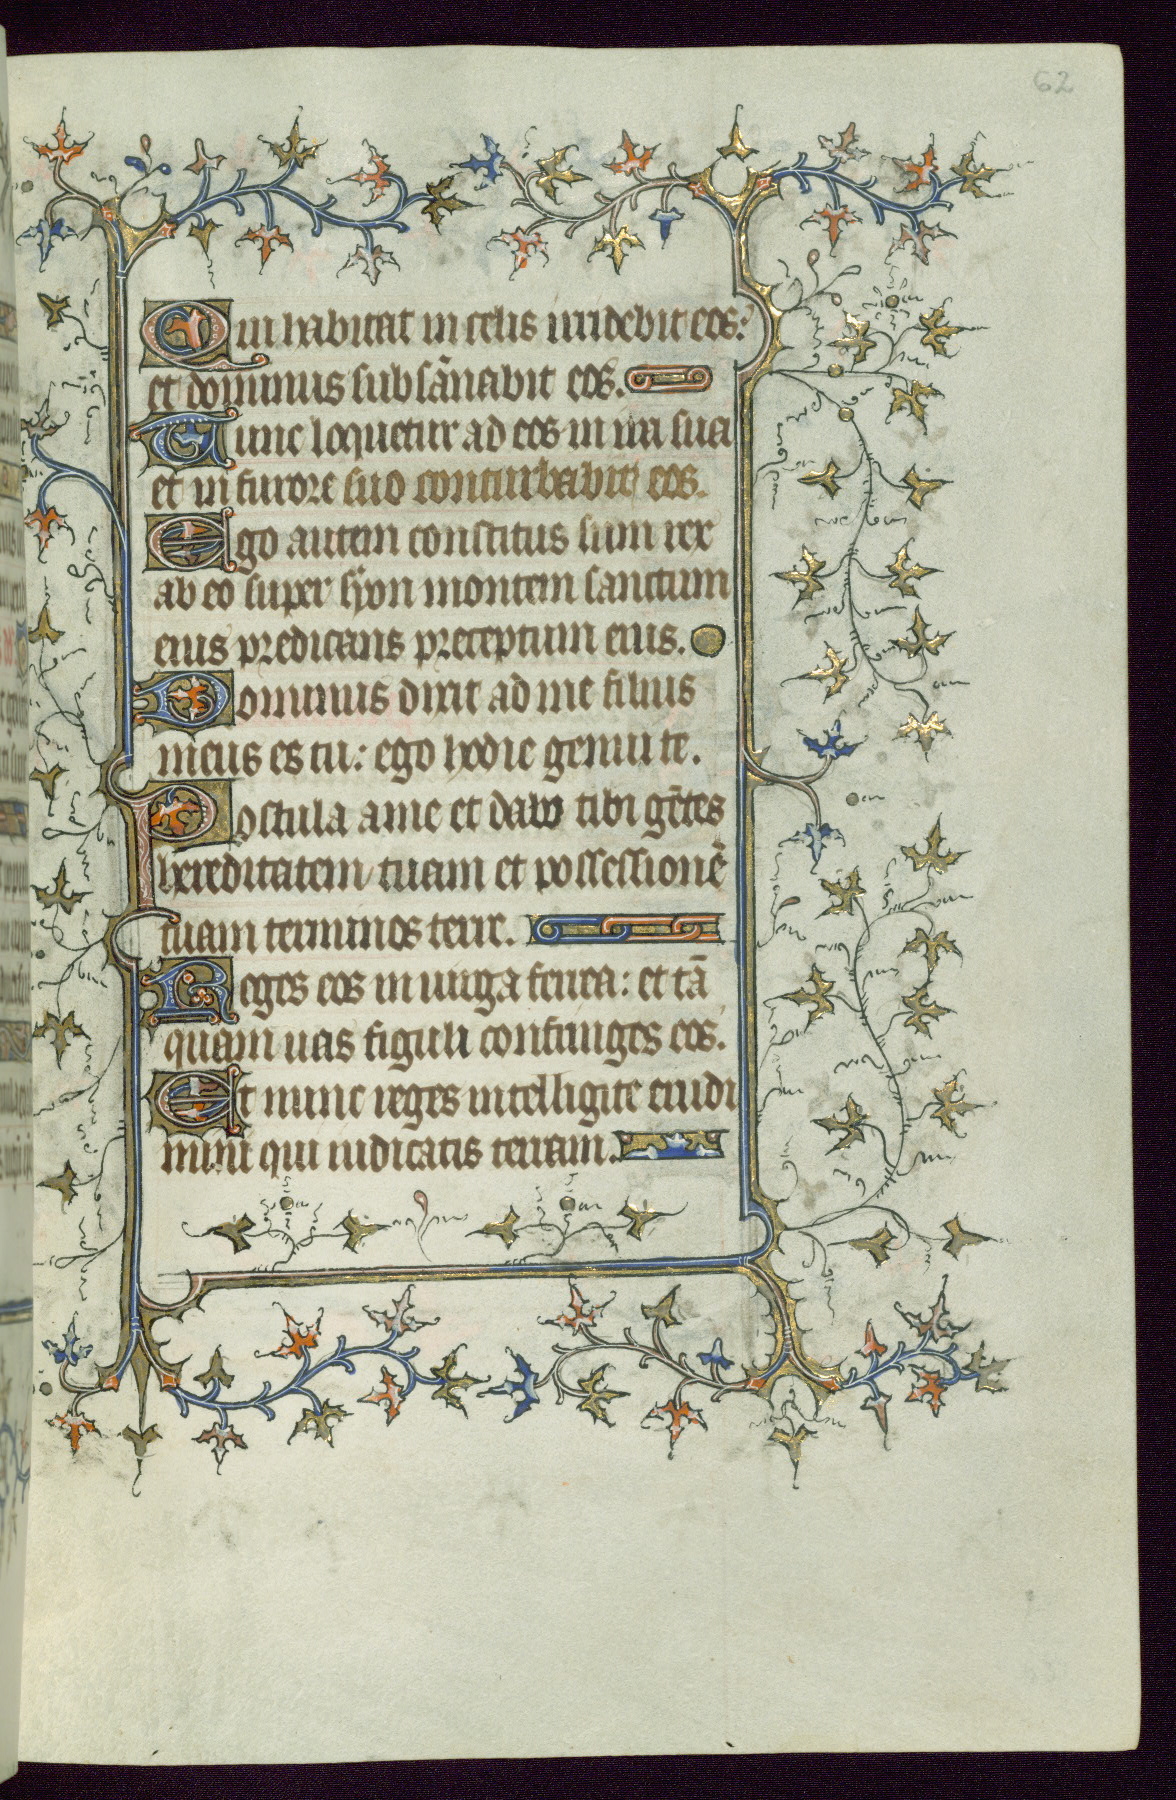 62
Qui habitat in celis irridebit eos:
et dominus subsānabit eos.
Tunc loquetur ad eos in ira sua
et in furore suo conturbabit eos.
Ego autem constitus sum rex
ab eo super syon montem sanctum
eius predicans preceptum eius.
Dominus dixit ad me filius
meus es tu: ego hodie genui te.
Postula a me et dabo tibi gētes
hereditatem tuam et possessionē
tuam terminos terre.
Reges eos in uirga ferrea: et tā
quam uas figuli confringes eos.
Et nunc reges intelligite erudi
mini qui iudicatis terram.